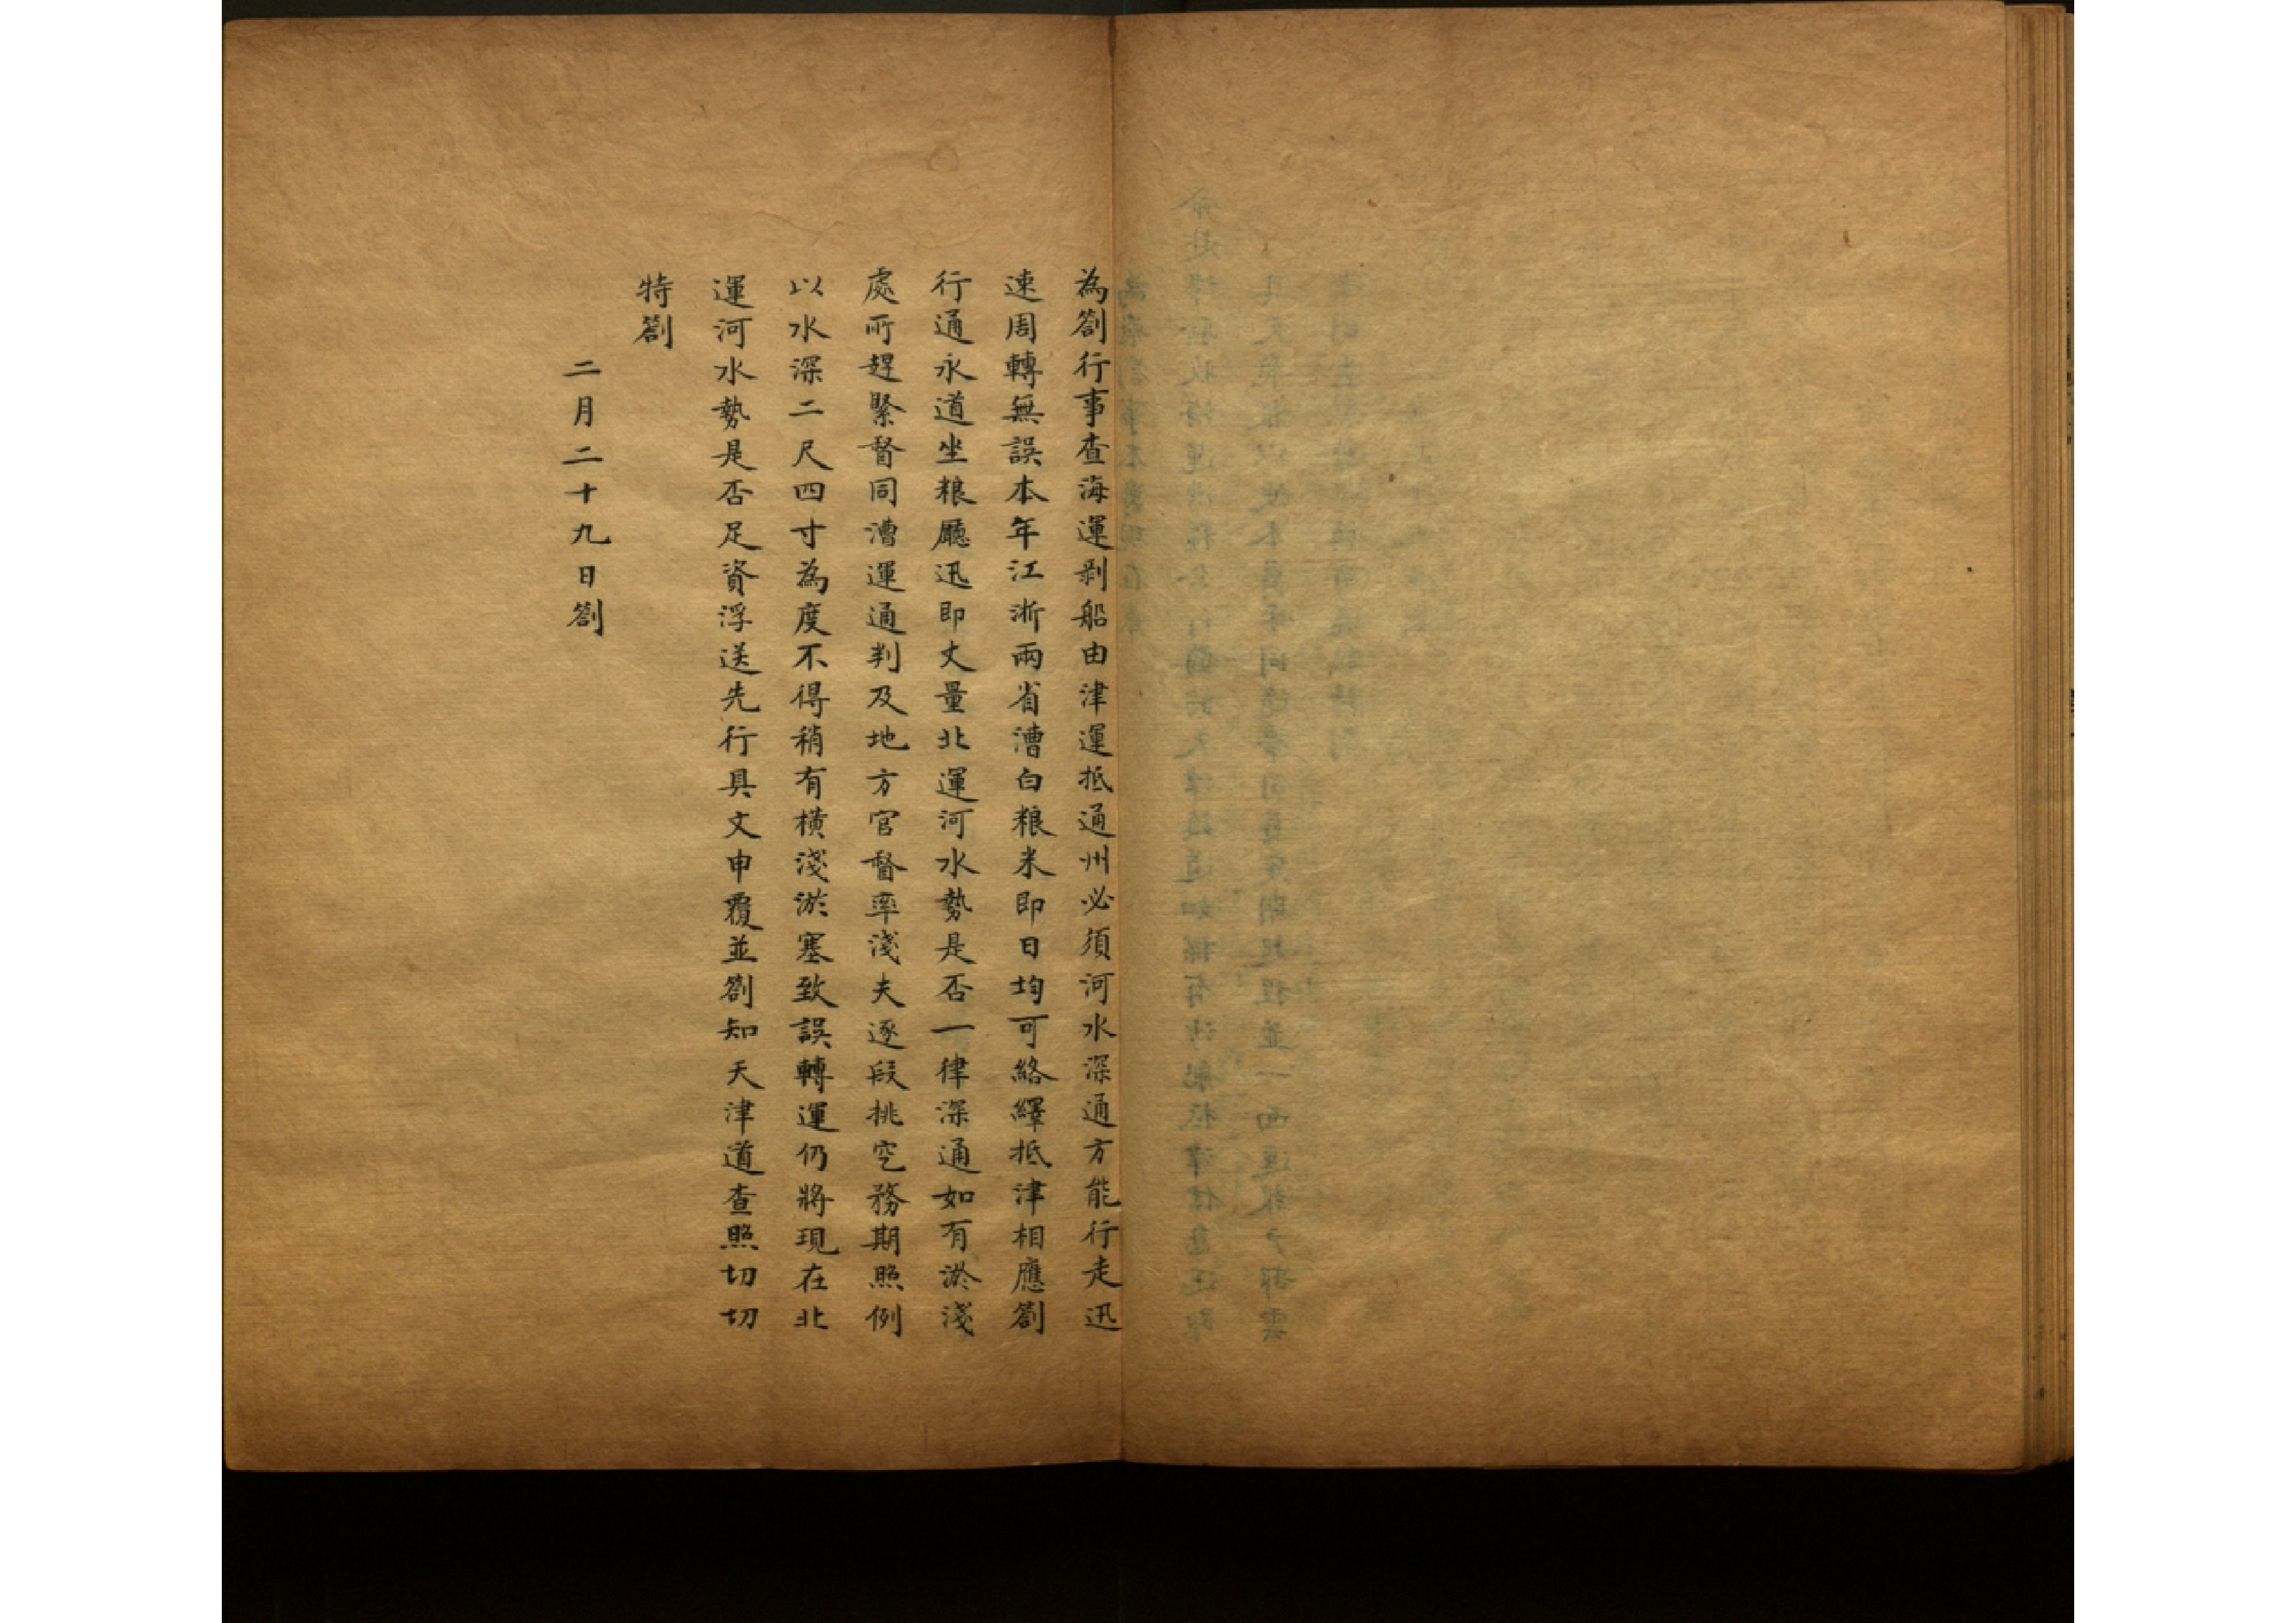 為劄行事查海運剥船由津運抵通州必須河水深通方能行走迅
速周轉無誤本年江浙兩省漕白粮米即日均可絡繹抵津相應劄
行通永道坐粮廳迅即丈量北運河水勢是否一律深通如有淤淺
處所趕緊督同漕運通判及地方官督率淺夫逐段挑空務期照例
以水深二尺四寸為度不得稍有橫淺淤塞致誤轉運仍將現在北
運河水勢是否足資浮送先行具文申覆並劄知天津道查照切切
特劄
二月二十九日劄